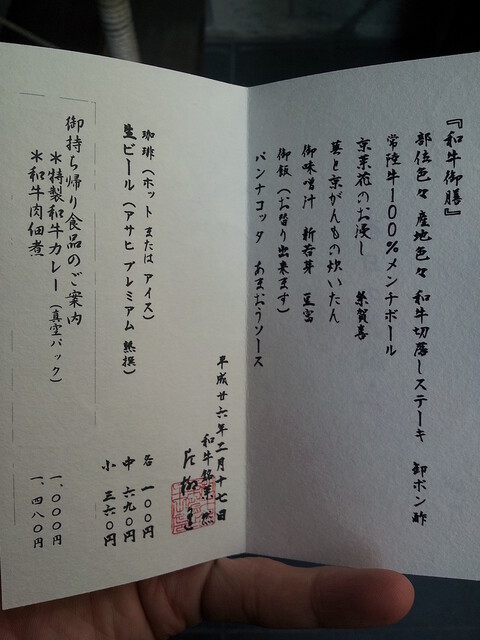 『和牛御膳』
部位色々 産地色々 和牛切落しステーキ 卸ポン酢
常陸牛100%メンチボール
京菜花のお浸し 糸賀喜
蕗と京がんもの炊いたん
御味噌汁 新若芽 豆富
御飯(お替り出来ます)
パンナコッタ あまおうソース
平成廿六年二月十七日
和牛銘菜 然
珈琲(ホット または アイス) 各 一〇〇円
生ビール(アサヒ プレミアム 熟撰) 中 六九〇円
小 三六〇円
御持ち帰り食品のご案内
*特製和牛カレー(真空パック) 一、〇〇〇円
*和牛肉佃煮 一、四八〇円